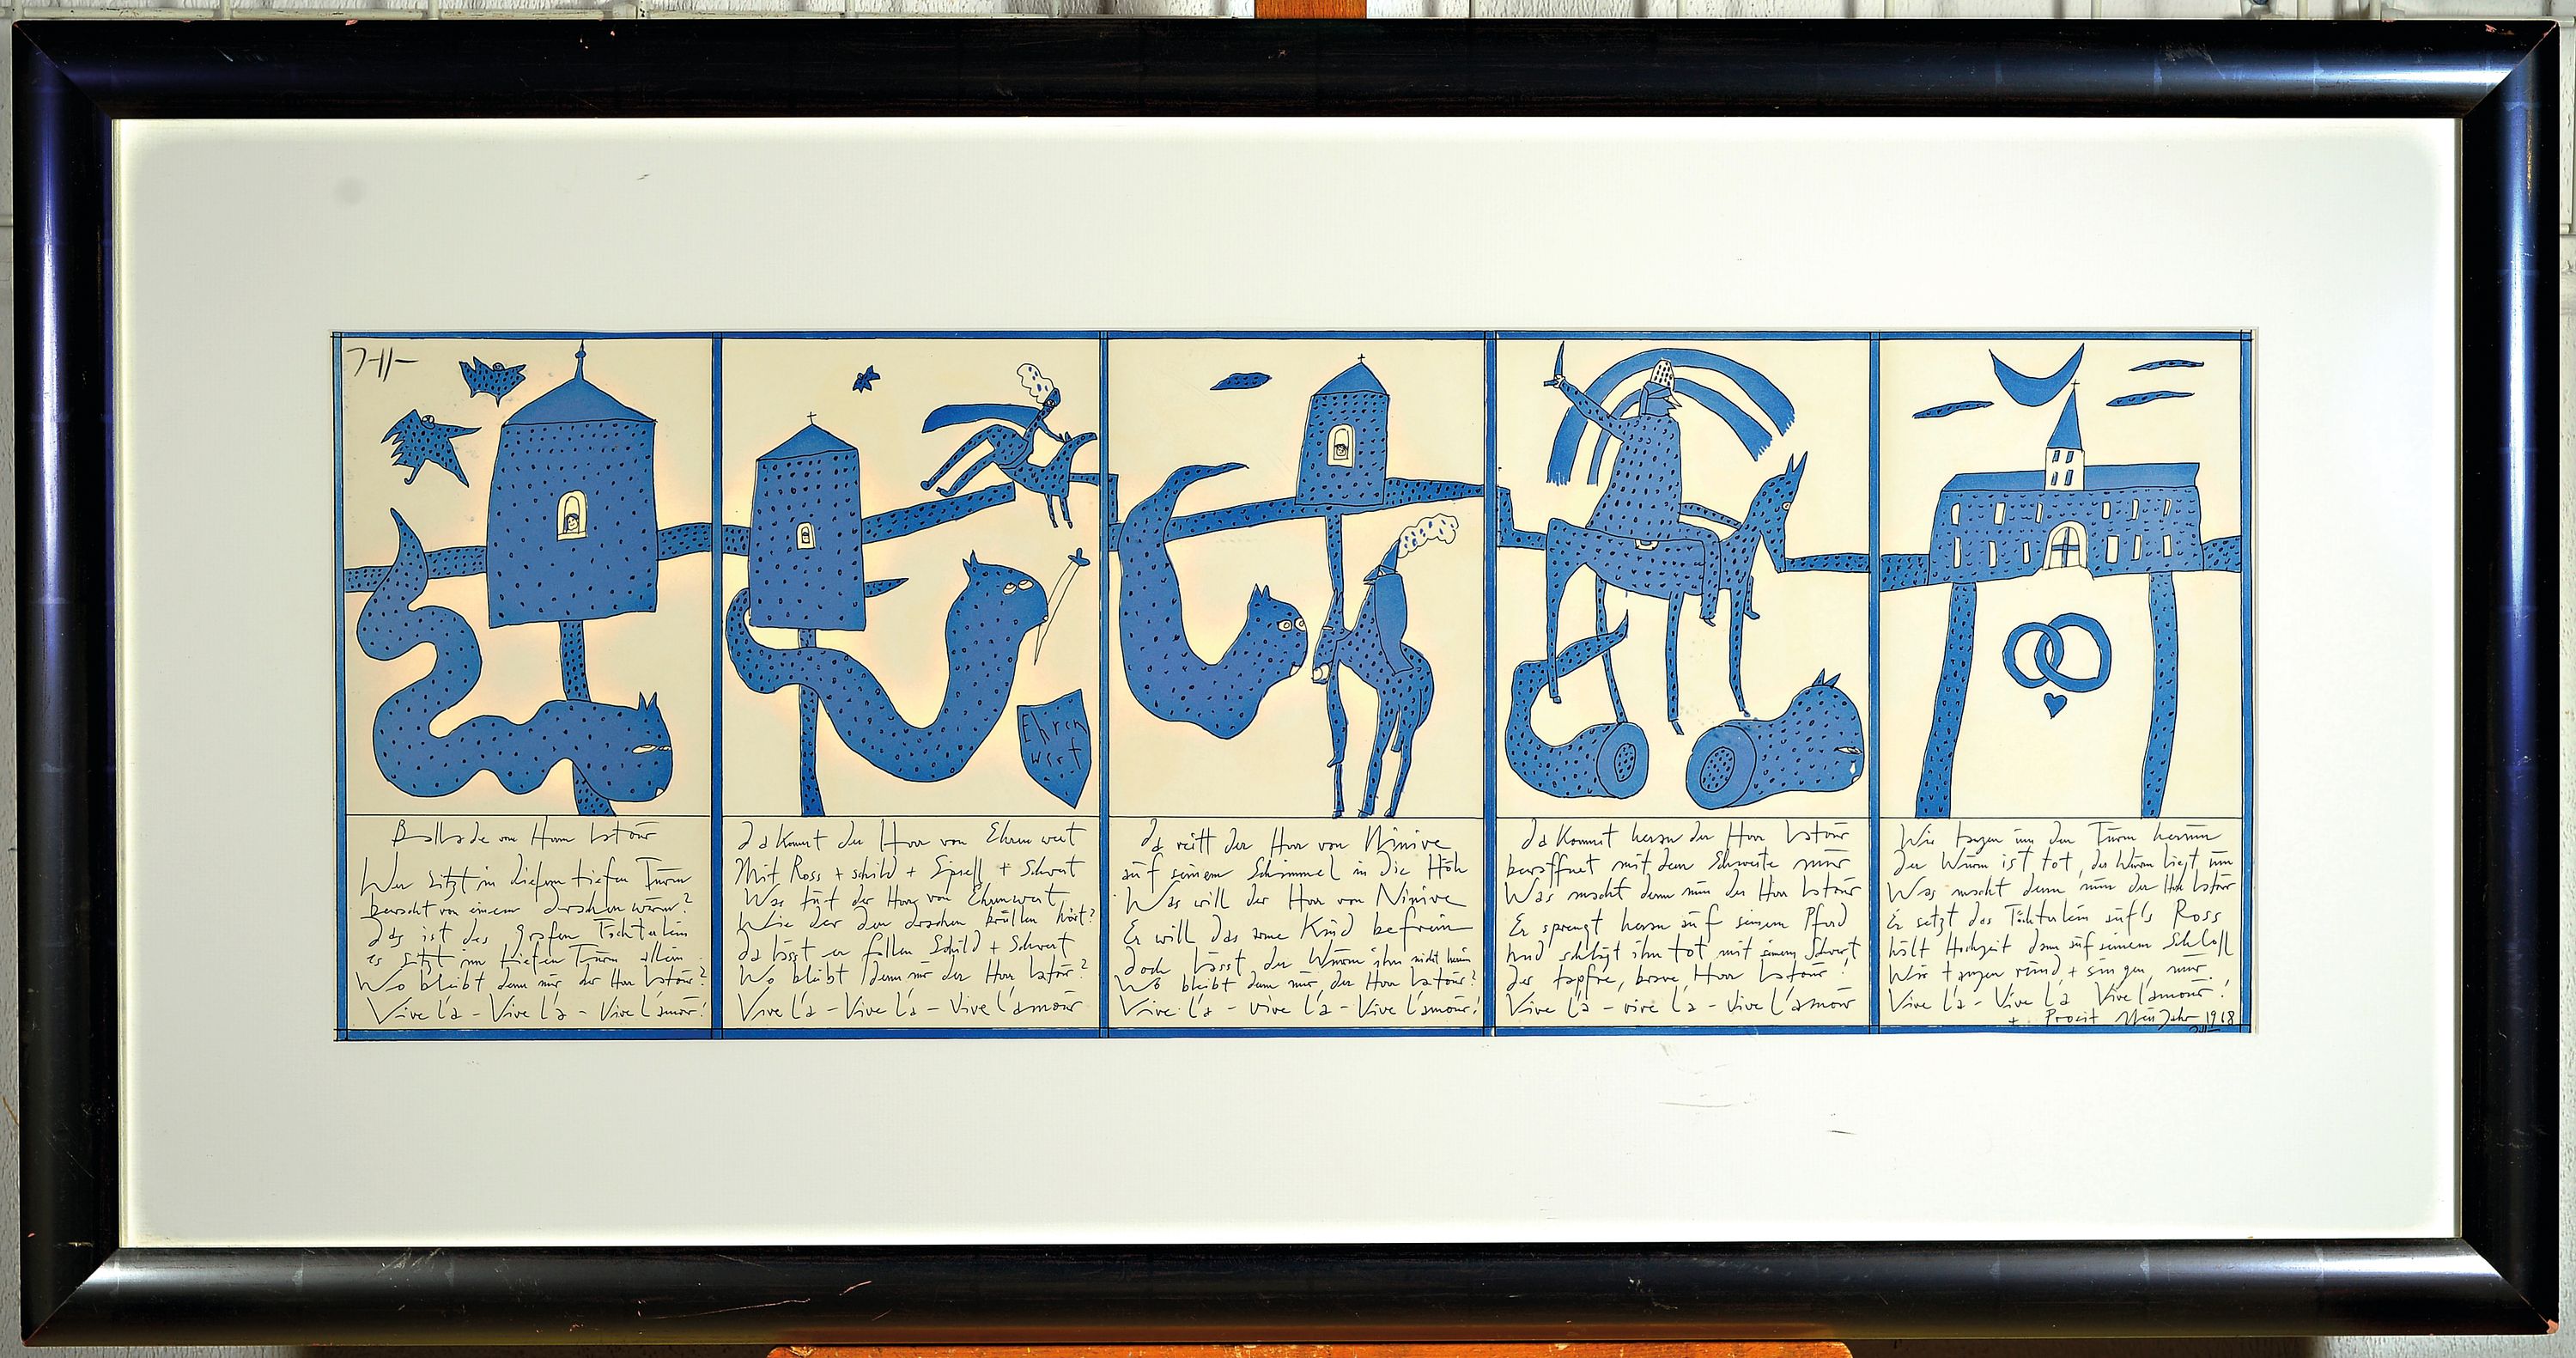 Ballade vom Herrn Latour
Wer sitzt in diesem tiefen Turm
bewacht von einem drachenwurm?
das ist des grafen Töchterlein
es sitzt im tiefen Turm allein
Wo bleibt denn nur der Herr Latour?
Vive l'a - Vive l'a - Vive l'amour!
Ehren
wert
da kommt der Herr von Ehrenwert
Mit Ross + schild + Spieß + Schwert
Was tut der Herr von Ehrenwert
Wie der den drachen brüllen hört?
da lässt er fallen Schild + Schwert
Wo bleibt denn nur der Herr Latour?
Vive l'a - Vive l'a - Vive l'amour
da reitt der Herr von Ninive
auf seinem Schimmel in die Höh
Was will der Herr von Ninive
Er will das arme Kind befrein
doch lässt der Wurm ihn nicht hinein
Wo bleibt denn nur der Herr Latour?
Vive l'a - vive l'a - Vive l'amour!
da kommt heran der Herr Latour
bewaffnet mit dem Schwerte nur
Was macht denn nun der Herr Latour
Er sprengt heran auf seinem Pferd
Und schlägt ihn tot mit seinem Schwert
der tapfre, brave, Herr Latour!
Vive l'a - vive l'a - Vive l'amour
Wir tanzen um den Turm herum
der Wurm ist tot, der Wurm liegt um
Was macht denn nun der Herr Latour
Er setzt das Töchterlein auf's Ross
hält Hochzeit dann auf seinem Schloß
Wir tanzen rund + singen nur
Vive l'a - Vive l'a Vive l'amour!
+ Prosit Neu Jahr 1968